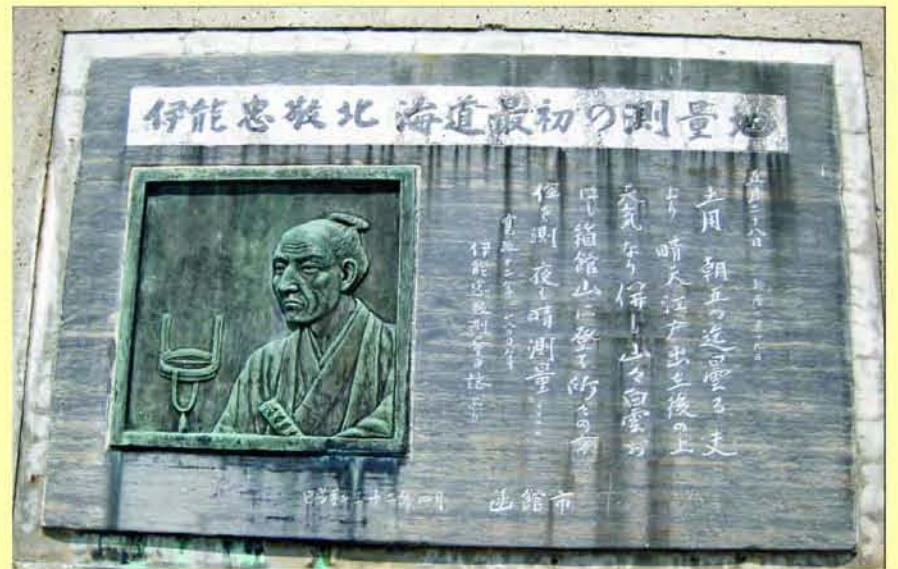 伊能忠敬北海道最初の測量地
五月二十八日
土用 朝五つ迄曇る 夫
より 晴天江戸出立後の上
天気なり 併し山々白雲お
ほし 箱館山に登て所々の方
位を測 夜も晴測量
寛政十二年
伊能忠敬測量日誌
昭和三十二年四月 函館市